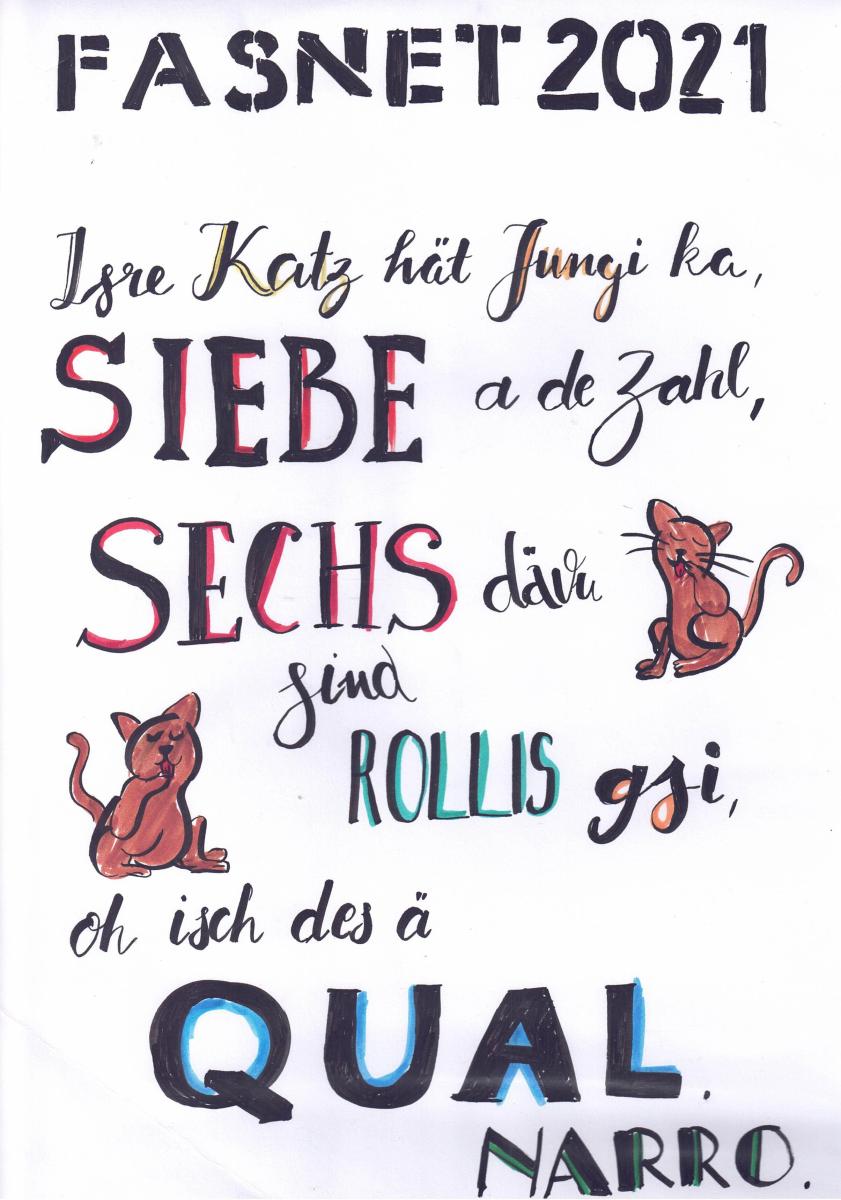 FASNET 2021
Isre Katz hät Jungi ka,
SIEBE a de Zahl,
SECHS dävu
sind
ROLLIS gsi,
oh isch des ä
QUAL.
NARRO.